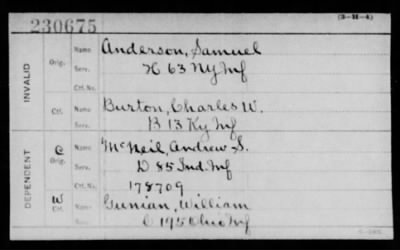 (3-H-4)
230675
INVALID
Orig. Name Anderson, Samuel
Serv. H 63 NY Inf
Ctf. No.
Ctf. Name Burton, Charles W.
Serv. B 13 Ky Inf
DEPENDENT
C Orig. Name McNeil, Andrew S.
Serv. D 85 Ind. Inf
Ctf. No. 178709
W Ctf. Name Gunian, William
C 195 Ohio Inf